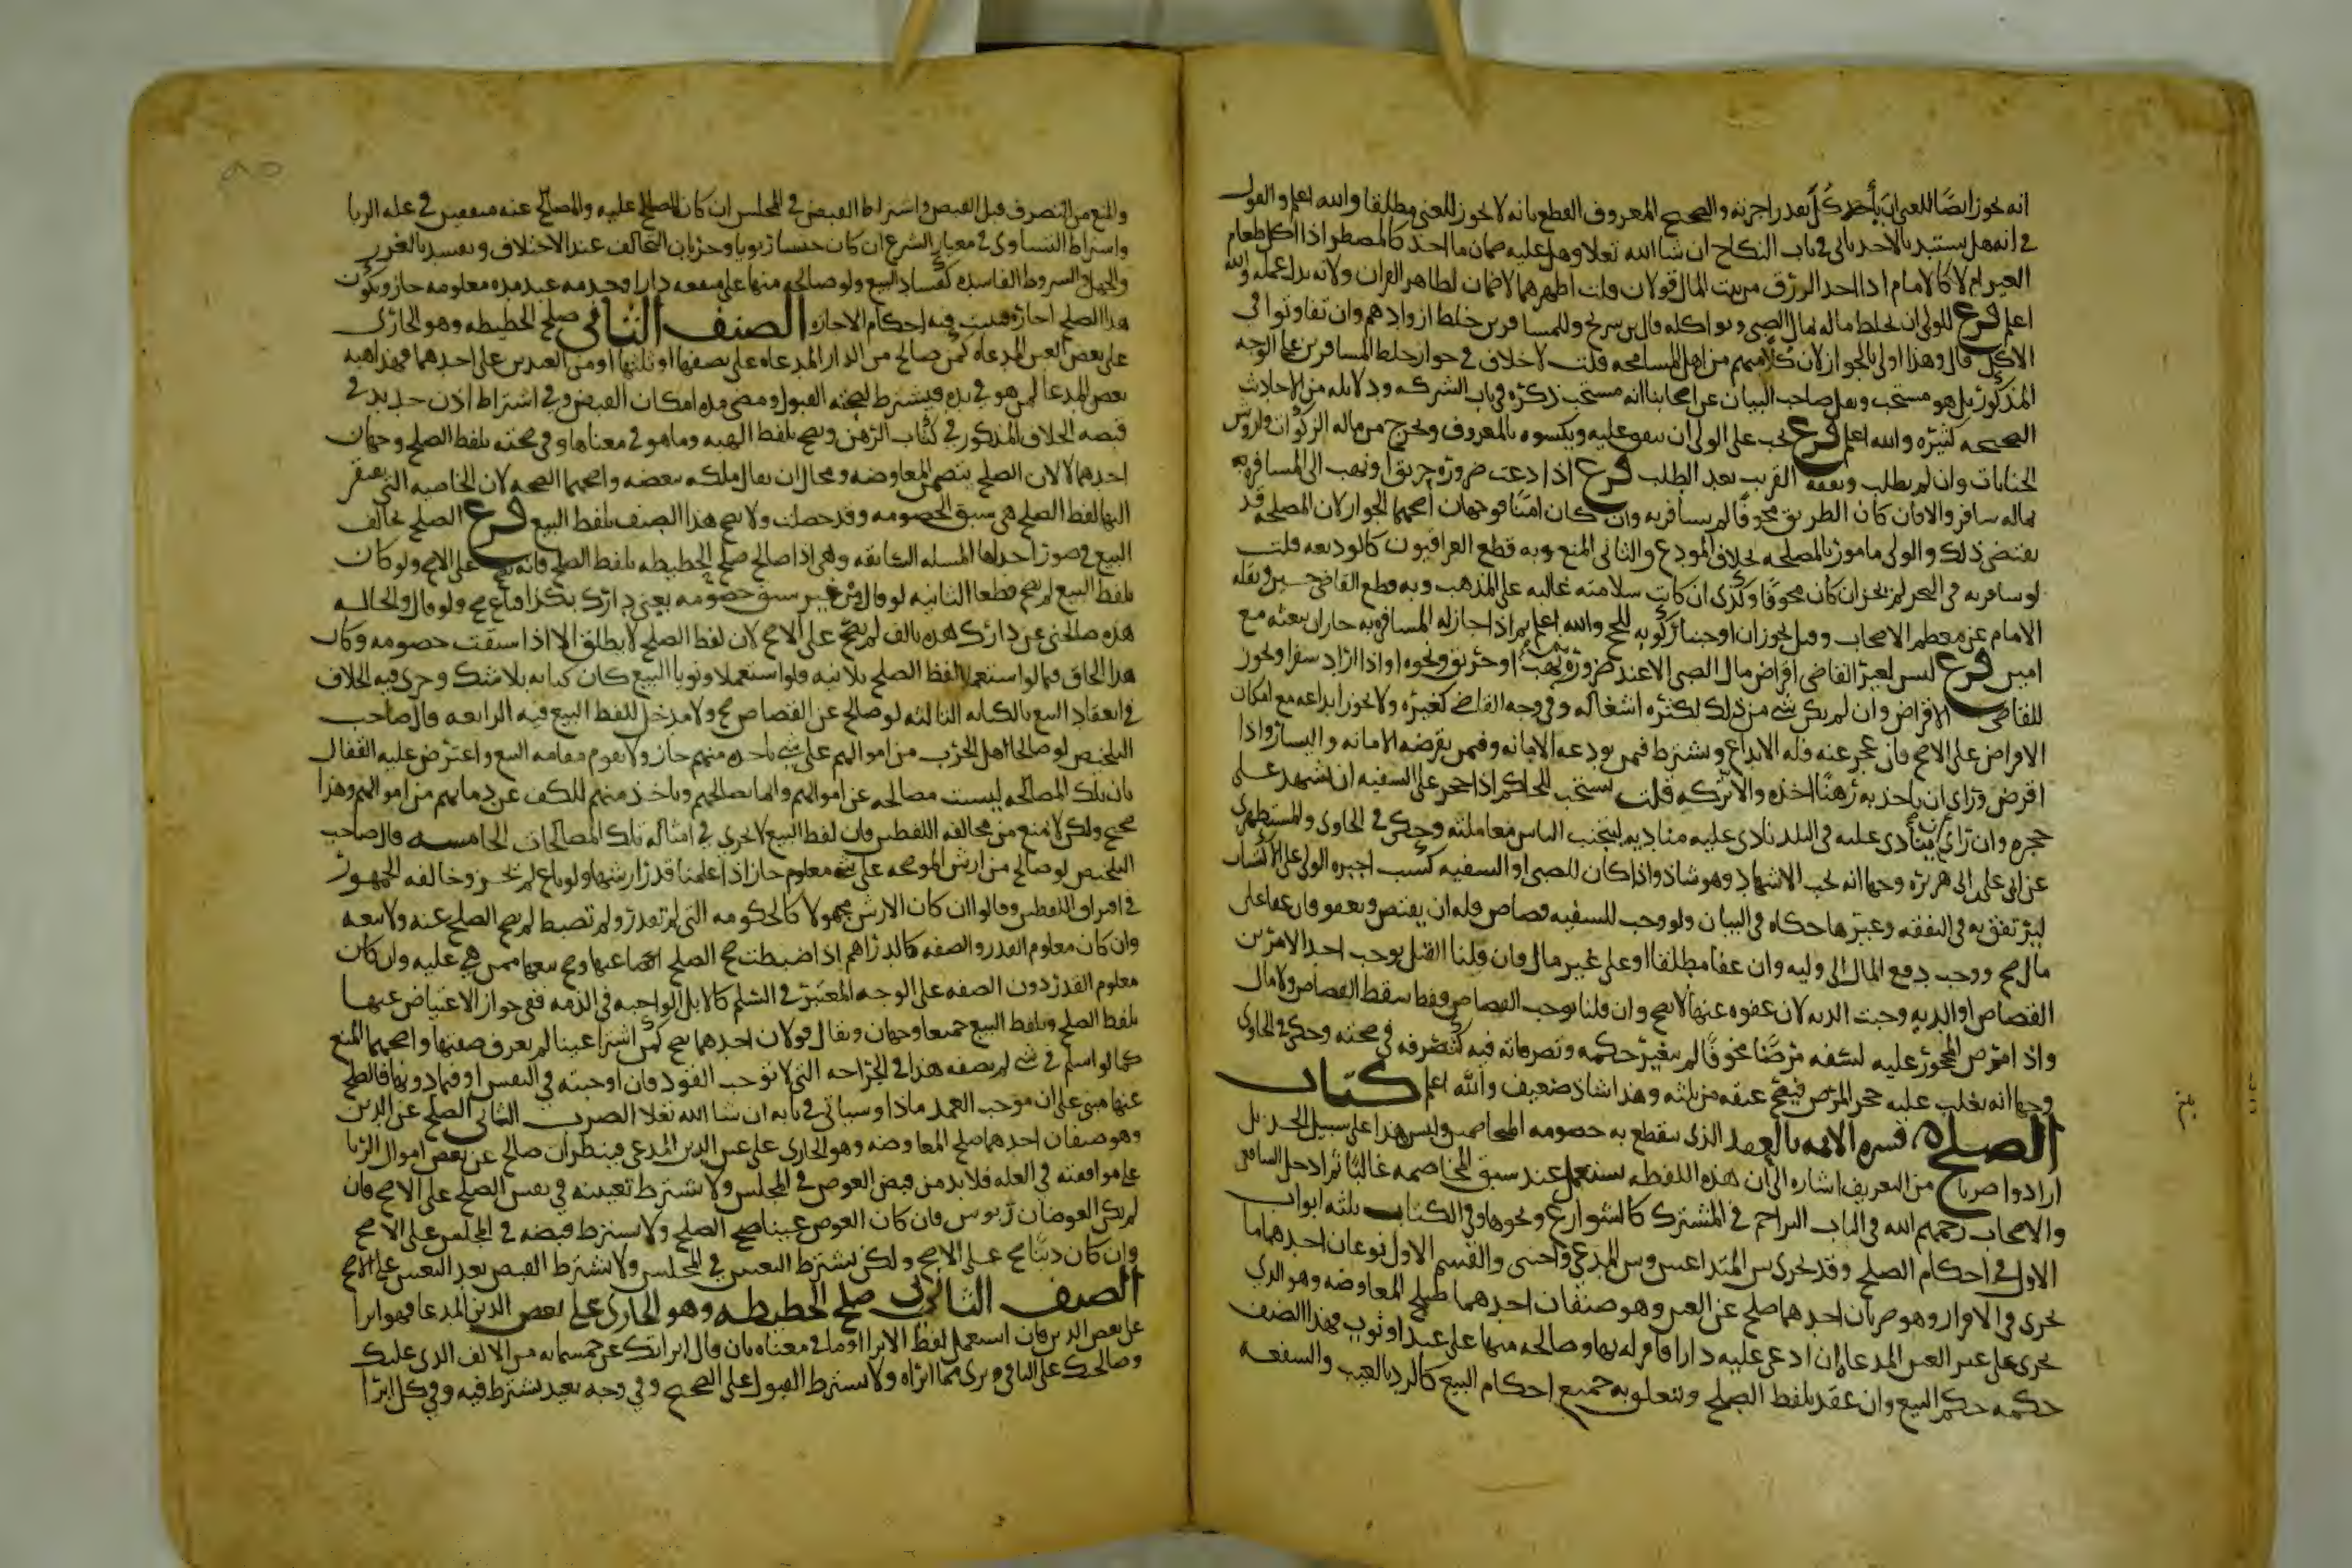 انه يجوز ايضا للغني ان يأخذ كل بقدر اجرته والصحيح المعروف القطع بانه لا يجوز للغني مطلقا والله اعلم والقول
في انه هل يستبد بالاخذ ياتي في باب النكاح ان شا الله تعلا وهل عليه ضمان ما اخذ كالمضطر اذا اكل طعام
الغير ام لا كالامام اذا اخذ الرزق من بيت المال قولان قلت اظهرهما لا ضمان لظاهر القران ولانه بدل عمله والله
اعلم فرع للولي ان يخلط ماله بمال الصبي ويواكله قال بن سريج وللمسافرين خلط ازوادهم وان تفاوتوا في
الاكل قال وهذا اولى بالجواز لان كلا منهم من اهل المسامحه قلت لا خلاف في جواز خلط المسافرين على الوجه
المذكور بل هو مستحب ونقل صاحب البيان عن اصحابنا انه مستحب ذكره في باب الشركه ودلايله من الاحاديث
الصحيحه كثيره والله اعلم فرع يجب على الولي ان ينفق عليه ويكسوه بالمعروف ويخرج من ماله الزكوات واروش
الجنايات وان لم يطلب ونفقه القريب بعد الطلب فرع اذا دعت ضروره حريق او نهب الى المسافره
بماله سافر والا فان كان الطريق مخوفا لم يسافر به وان كان امنا فوجهان اصحهما الجواز لان المصلحه قد
يقتضي ذلك والولي مامور بالمصلحه بخلاف المودع والثاني المنع وبه قطع العراقيون كالوديعه قلت
لو سافر به في البحر لم يجز ان كان مخوفا وكذى ان كانت سلامته غالبه على المذهب وبه قطع القاضي حسين ونقله
الامام عن معظم الاصحاب وقيل يجوز ان اوجبنا ركوبه للحج والله اعلم ثم اذا جاز له المسافره به جاز ان يبعثه مع
امين فرع ليس لغير القاضي اقراض مال الصبي الا عند ضروره نهب او حريق ونحوه او اذا اراد سفرا ويجوز
للقاضي الاقراض وان لم يكن شي من ذلك لكثره اشغاله وفي وجه القاضي كغيره ولا يجوز ايداعه مع امكان
الاقراض على الاصح فان عجز عنه فله الايداع ويشترط فيمن يودعه الامانه وفيمن يقرضه الامانه واليسار واذا
اقرض وراى ان ياخذ به رهنا اخذه والا تركه قلت يستحب للحاكم اذا حجر على السفيه ان يشهد على
حجره وان راى ان ينادى عليه في البلد نادى عليه مناديه ليتجنب الناس معاملته وحكى في الحاوي والمستظهري
عن ابي علي بن ابي هريره وجها انه يجب الاشهاد وهو شاذ واذا كان للصبي او السفيه كسب اجبره الولي على الاكتساب
ليرتفق به في النفقه وغيرها حكاه في البيان ولو وجب للسفيه قصاص فله ان يقتص ويعفو فان عفا على
مال صح ووجب دفع المال الى وليه وان عفا مطلقا او على غير مال فان قلنا القتل يوجب احد الامرين
القصاص او الديه وجبت الديه لان عفوه عنها لا يصح وان قلنا يوجب القصاص فقط سقط القصاص ولا مال
واذا مرض المحجور عليه لسفه مرضا مخوفا لم يتغير حكمه وتصرفاته فيه كتصرفه في صحته وحكى في الحاوي
وجها انه يغلب عليه حجر المرض فيصح عتقه من ثلثه وهذا شاذ ضعيف والله اعلم كتاب
الصلح فسره الايمه بالعقد الذي ينقطع به خصومه المتخاصمين وليس هذا على سبيل الحد بل
ارادوا ضربا من التعريف اشاره الى ان هذه اللفظه يستعمل عند سبق المخاصمه غالبا ثم ادخل الشافعي
والاصحاب رحمهم الله في الباب التزاحم في المشترك كالشوارع ونحوها وفي الكتاب ثلثه ابواب
الاول في احكام الصلح وقد يجرى بين المتداعيين وبين المدعي واجنبي والقسم الاول نوعان احدهما ما
يجرى في الاقرار وهو ضربان احدهما صلح عن العين وهو صنفان احدهما صلح المعاوضه وهو الذي
يجرى على غير العين المدعاه بان ادعى عليه دارا فاقر له بها وصالحه منها على عبد او ثوب فهذا الصنف
حكمه حكم البيع وان عقد بلفظ الصلح ويتعلق به جميع احكام البيع كالرد بالعيب والشفعه
والمنع من التصرف قبل القبض واشتراط القبض في المجلس ان كان المصالح عليه والمصالح عنه متفقين في عله الربا
واشتراط التساوي في معيار الشرع ان كان جنسا ربويا وجريان التحالف عند الاختلاف ويفسد بالغرر
والجهل والشروط الفاسده كفساد البيع ولو صالحه منها على منفعه دار او خدمه عبد مده معلومه جاز ويكون
هذا الصلح اجازه فيثبت فيه احكام الاجازه الصنف الثاني صلح الحطيطه وهو الجاري
على بعض العين المدعاه كمن صالح من الدار المدعاه على نصفها او ثلثها او من العبدين على احدهما فهذا هبه
بعض المدعا لمن هو في يده فيشترط لصحته القبول ومضى مده امكان القبض وفي اشتراط اذن جديد في
قبضه الخلاف المذكور في كتاب الرهن ويصح بلفظ الهبه وما هو في معناها وفي صحته بلفظ الصلح وجهان
احدهما لا لان الصلح يتضمن المعاوضه ومحال ان يقابل ملكه ببعضه واصحهما الصحه لان الخاصيه التي يفتقر
اليها لفظ الصلح هي سبق الخصومه وقد حصلت ولا يصح هذا الصنف بلفظ البيع فرع الصلح يخالف
البيع في صور احداها المسله السابقه وهي اذا صالح صلح الحطيطه بلفظ الصلح فانه يصح على الاصح ولو كان
بلفظ البيع لم يصح قطعا الثانيه لو قال من غير سبق خصومه بعني دارك بكذا فباع صح ولو قال والحاله
هذه صالحني عن دارك هذه بالف لم يصح على الاصح لان لفظ الصلح لا يطلق الا اذا سبقت خصومه وكان
هذا الخلاف فيما لو استعملا لفظ الصلح بلا نيه فلو استعملا ونويا البيع كان كنايه بلا شك وجرى فيه الخلاف
في انعقاد البيع بالكنايه الثالثه لو صالح عن القصاص صح ولا مدخل للفظ البيع فيه الرابعه قال صاحب
التلخيص لو صالحنا اهل الحرب من اموالهم على شي ناخذه منهم جاز ولا يقوم مقامه البيع واعترض عليه القفال
بان تلك المصالحه ليست مصالحه عن اموالهم وانما نصالحهم وناخذ منهم للكف عن دمايهم من اموالهم وهذا
صحيح ولكن لا يمنع من مخالفه اللفظين فان لفظ البيع لا يجرى في امثاله تلك المصالحات الخامسه قال صاحب
التلخيص لو صالح من ارش الموضحه على شي معلوم جاز اذا علمنا قدر ارشها ولو باع لم يجز وخالفه الجمهور
في افتراق اللفظين وقالوا ان كان الارش مجهولا كالحكومه التي لم تقدر ولم تضبط لم يصح الصلح عنه ولا بيعه
وان كان معلوم القدر والصفه كالدراهم اذا ضبطت صح الصلح عنها وصح بيعها ممن هي عليه وان كان
معلوم القدر دون الصفه على الوجه المعتبر في السلم كالابل الواجبه في الذمه ففي جواز الاعتياض عنها
بلفظ الصلح وبلفظ البيع جميعا وجهان ويقال قولان احدهما يصح كمن اشترا عينا لم يعرف صفتها واصحهما المنع
كما لو اسلم في شي لم يصفه هذا في الجراحه التي لا توجب القود فان اوجبته في النفس او فيما دونها فالصلح
عنها مبني على ان موجب العمد ماذا وسياتي في بابه ان شا الله تعلا الضرب الثاني الصلح عن الدين
وهو صنفان احدهما صلح المعاوضه وهو الجاري على عين الدين المدعى فينظر ان صالح عن بعض اموال الربا
على موافقته في العله فلا بد من قبض العوض في المجلس ولا يشترط تعيينه في نفس الصلح على الاصح فان
لم يكن العوضان ربويين فان كان العوض عينا صح الصلح ولا يشترط قبضه في المجلس على الاصح
وان كان دينا صح على الاصح ولكن يشترط التعيين في المجلس ولا يشترط القبض بعد التعيين على الاصح
الصنف الثاني صلح الحطيطه وهو الجاري على بعض الدين المدعا فهو ابرا
عن بعض الدين فان استعمل لفظ الابرا او ما في معناه بان قال ابراتك عن خمسمايه من الالف الذي عليك
وصالحتك على الباقي بري مما ابراه ولا يشترط القبول على الصحيح وفي وجه بعيد يشترط فيه وفي كل ابرا